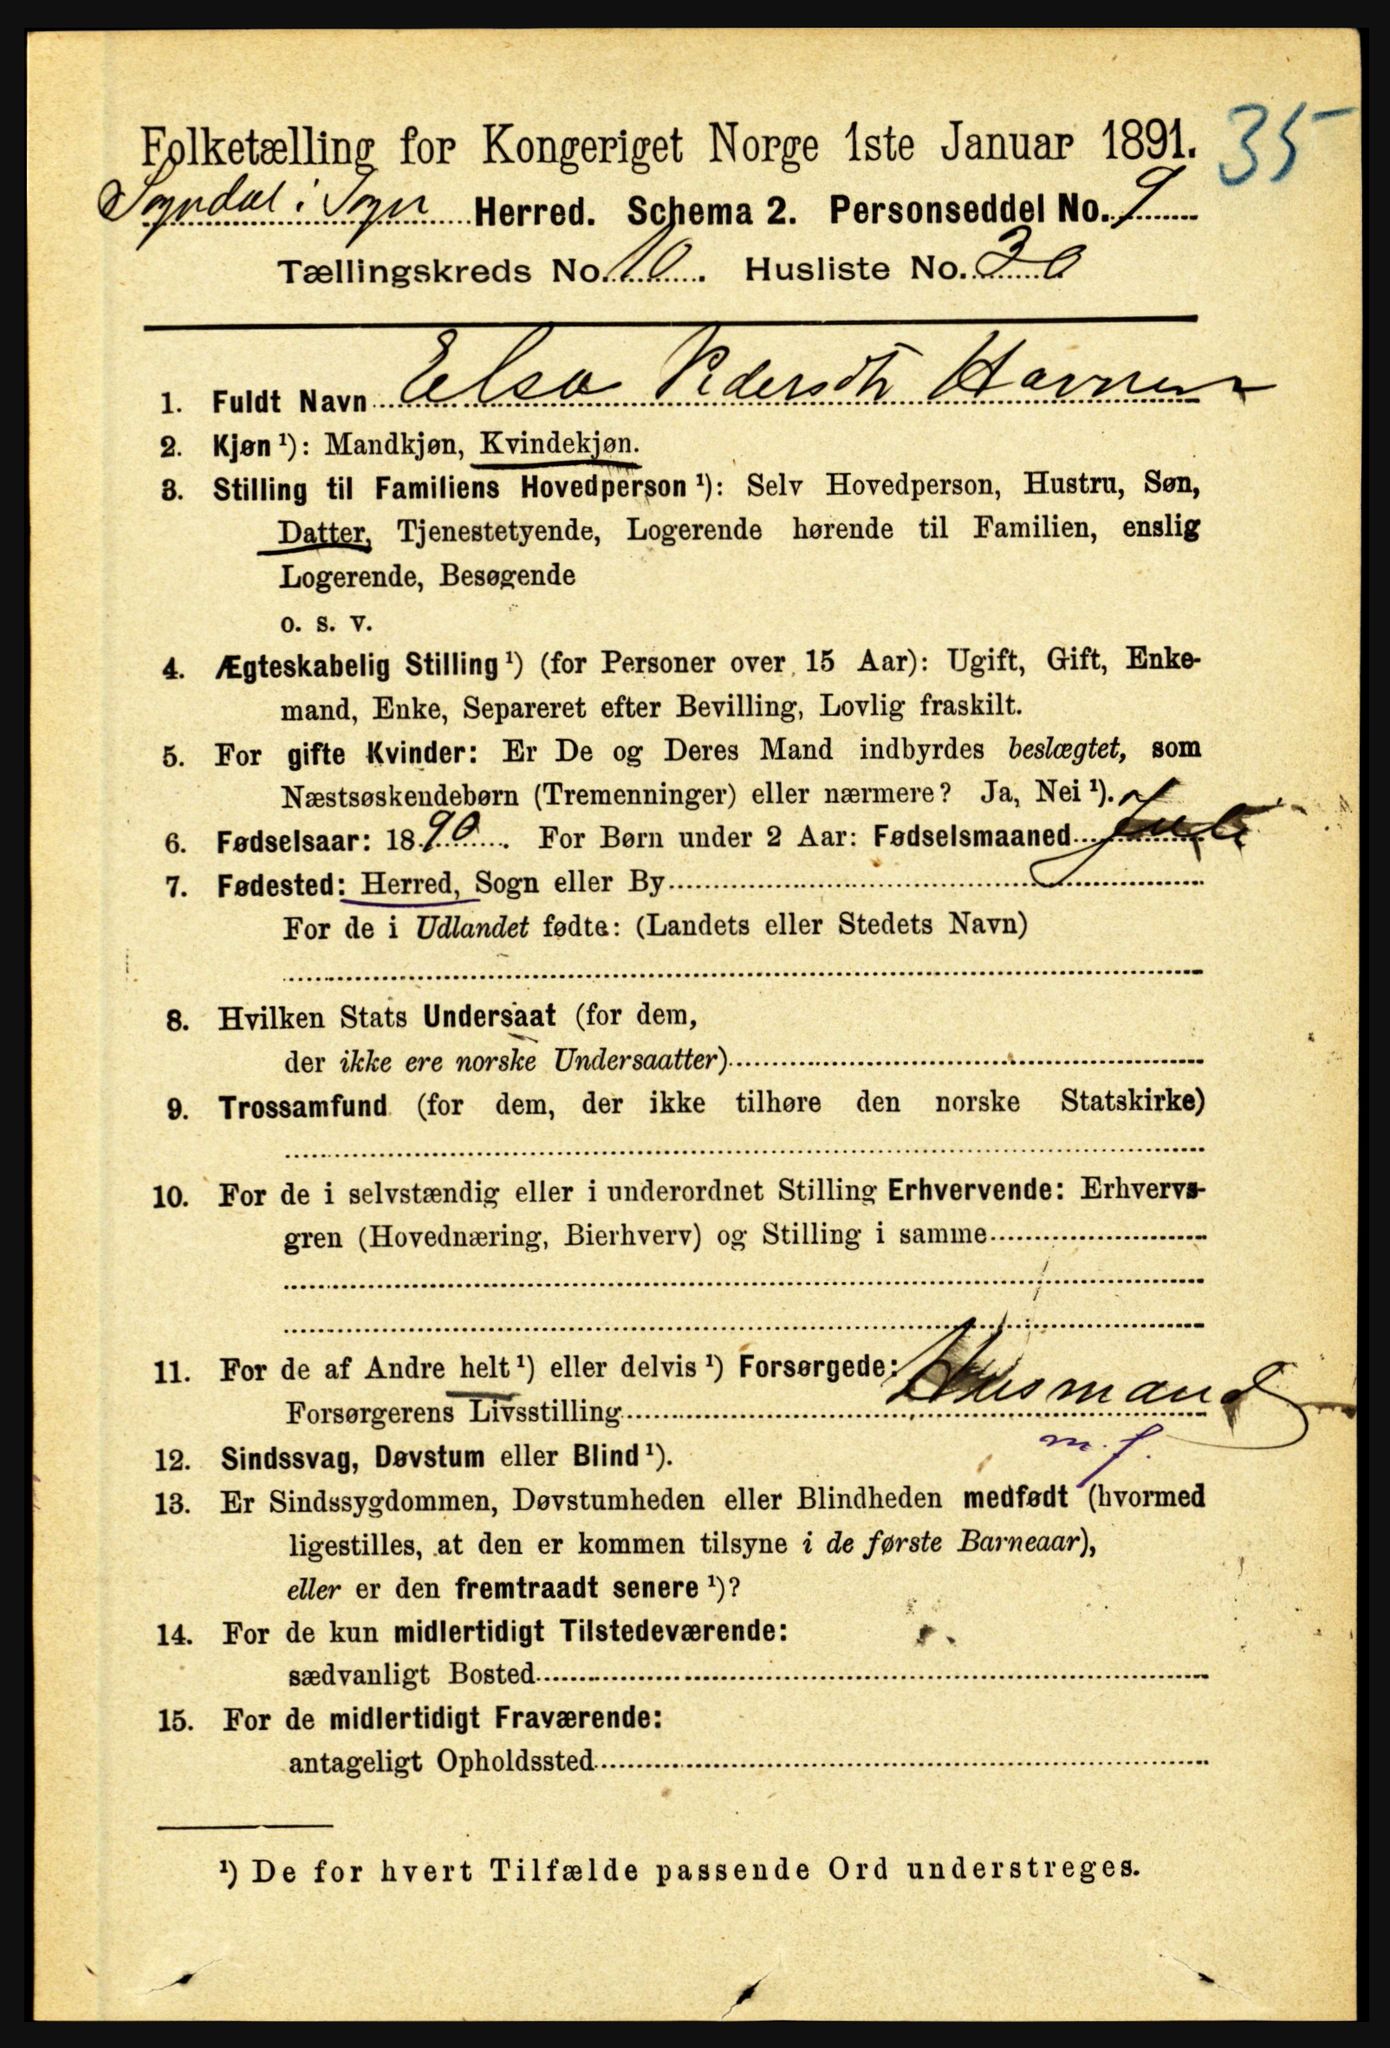 Folketælling for Kongeriget Norge 1ste Januar 1891. 35
Sogndal i Sogn Herred. Schema 2. Personseddel No. 9
Tællingskreds No. 10. Husliste No. 30
1. Fuldt Navn Elsa Pedersdtr Havnen
2. Kjøn ¹): Mandkjøn, Kvindekjøn.
3. Stilling til Familiens Hovedperson ¹): Selv Hovedperson, Hustru, Søn,
Datter, Tjenestetyende, Logerende hørende til Familien, enslig
Logerende, Besøgende
o. s. v.
4. Ægteskabelig Stilling ¹) (for Personer over 15 Aar): Ugift, Gift, Enke-
mand, Enke, Separeret efter Bevilling, Lovlig fraskilt.
5. For gifte Kvinder: Er De og Deres Mand indbyrdes beslægtet, som
Næstsøskendebørn (Tremenninger) eller nærmere? Ja, Nei ¹).
6. Fødselsaar: 1890. For Børn under 2 Aar: Fødselsmaaned
7. Fødested: Herred, Sogn eller By
For de i Udlandet fødte: (Landets eller Stedets Navn)
8. Hvilken Stats Undersaat (for dem,
der ikke ere norske Undersaatter)
9. Trossamfund (for dem, der ikke tilhøre den norske Statskirke)
10. For de i selvstændig eller i underordnet Stilling Erhvervende: Erhvervs-
gren (Hovednæring, Bierhverv) og Stilling i samme
11. For de af Andre helt ¹) eller delvis ¹) Forsørgede:
Forsørgerens Livsstilling Husmand
m. j.
12. Sindssvag, Døvstum eller Blind ¹).
13. Er Sindssygdommen, Døvstumheden eller Blindheden medfødt (hvormed
ligestilles, at den er kommen tilsyne i de første Barneaar),
eller er den fremtraadt senere ¹)?
14. For de kun midlertidigt Tilstedeværende:
sædvanligt Bosted
15. For de midlertidigt Fraværende:
antageligt Opholdssted
¹) De for hvert Tilfælde passende Ord understreges.